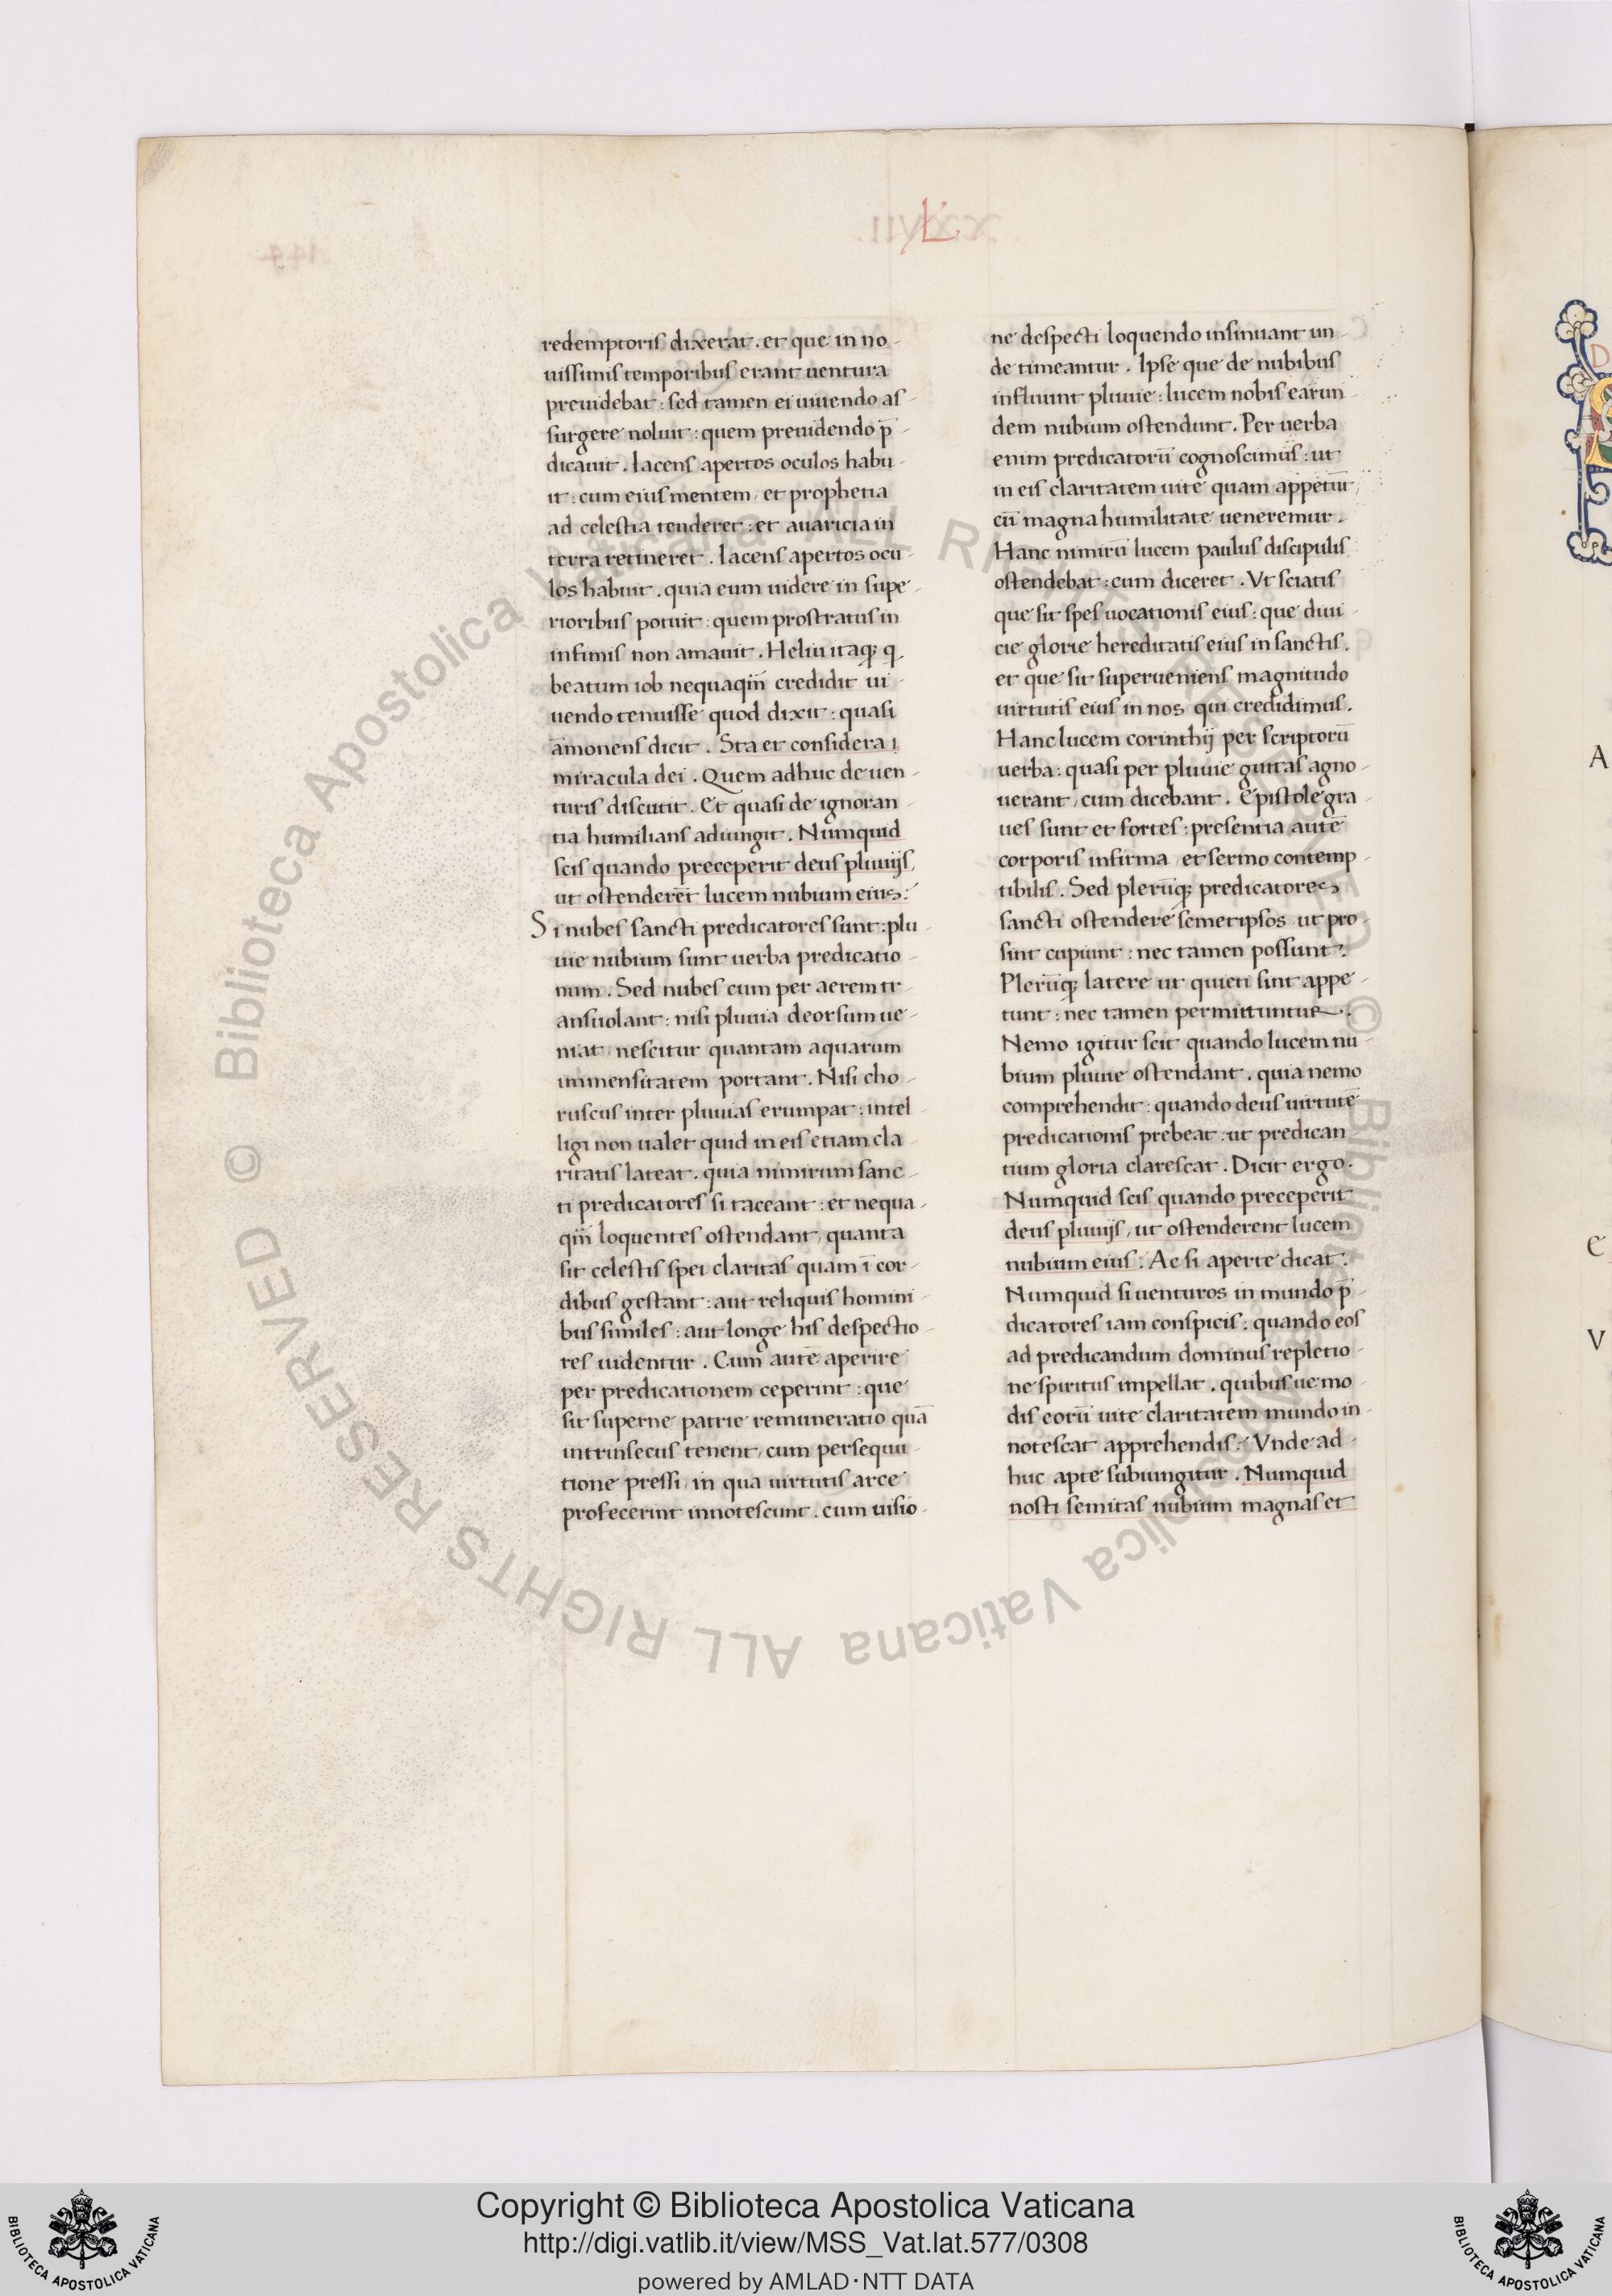 L
redemptoris dixerat. et que in no-
uissimis temporibus erant uentura
preuidebat: sed tamen ei uiuendo as-
surgere noluit: quem preuidendo p̄-
dicauit. Iacens apertos oculos habu-
it: cum eius mentem, et prophetia
ad celestia tenderet: et auaricia in
terra retineret. Iacens apertos ocu-
los habuit. quia eum uidere in supe-
rioribus potuit: quem prostratus in
infimis non amauit. Heliu itaq; q
beatum iob nequaqm̄ credidit ui-
uendo tenuisse quod dixit: quasi
āmonens dicit. Sta et considera
miracula dei. Quem adhuc de uen-
turis discutit. Et quasi de ignoran-
tia humilians adiungit. Numquid
scis quando preceperit deus pluuijs,
ut ostenderēt lucem nubium eius?
Si nubes sancti predicatores sunt: plu-
uie nubium sunt uerba predicatio-
num. Sed nubes cum per aerem tr-
ansuolant: nisi pluuia deorsum ue-
niat, nescitur quantam aquarum
immensitatem portant. Nisi cho-
ruscus inter pluuias erumpat: intel-
ligi non ualet quid in eis etiam cla-
ritatis lateat. quia nimirum sanc-
ti predicatores si taceant: et nequa-
qm̄ loquentes ostendant, quanta
sit celestis spei claritas quam ī cor-
dibus gestant: aut reliquis homini-
bus similes: aut longe his despectio-
res uidentur. Cum autē aperire
per predicationem ceperint: que
sit superne patrie remuneratio quā
intrinsecus tenent, cum persequu-
tione pressi, in qua uirtutis arce
profecerint innotescunt. cum uisio-
ne despecti loquendo insinuant un-
de timeantur. Ipse que de nubibus
influunt pluuie: lucem nobis earun-
dem nubium ostendunt. Per uerba
enim predicatorū cognoscimus: ut
in eis claritatem uite quam appetūt,
cū magna humilitate ueneremur.
Hanc nimirū lucem paulus discipulis
ostendebat: cum diceret. Vt sciatis
que sit spes uocationis eius: que diui-
cie glorie hereditatis eius in sanctis.
et que sit superueniens magnitudo
uirtutis eius in nos qui credidimus.
Hanc lucem corinthij per scriptorū
uerba: quasi per pluuie guttas agno-
uerant, cum dicebant. Epistole gra-
ues sunt et fortes: presentia autē
corporis infirma, et sermo contemp-
tibilis. Sed plerūq; predicatores
sancti ostendere semetipsos, ut pro-
sint cupiunt: nec tamen possunt.
Plerūq; latere ut quieti sint appe-
tunt: nec tamen permittuntur.
Nemo igitur scit quando lucem nu-
bium pluuie ostendant. quia nemo
comprehendit: quando deus uirtutē
predicationis prebeat: ut predican-
tium gloria clarescat. Dicit ergo.
Numquid scis quando preceperit
deus pluuijs, ut ostenderent lucem
nubium eius. Ac si aperte dicat.
Numquid si uenturos in mundo p̄-
dicatores iam conspicis: quando eos
ad predicandum dominus repletio-
ne spiritus impellat. quibus ue mo-
dis eorū uite claritatem mundo in-
notescat apprehendis? Vnde ad-
huc apte subiungitur. Numquid
nosti semitas nubium magnas et
D
A
E
V
© Biblioteca Apostolica Vaticana ALL RIGHTS RESERVED
© Biblioteca Apostolica Vaticana ALL RIGHTS RESERVED
Copyright © Biblioteca Apostolica Vaticana
http://digi.vatlib.it/view/MSS_Vat.lat.577/0308
powered by AMLAD·NTT DATA
BIBLIOTECA APOSTOLICA VATICANA
BIBLIOTECA APOSTOLICA VATICANA